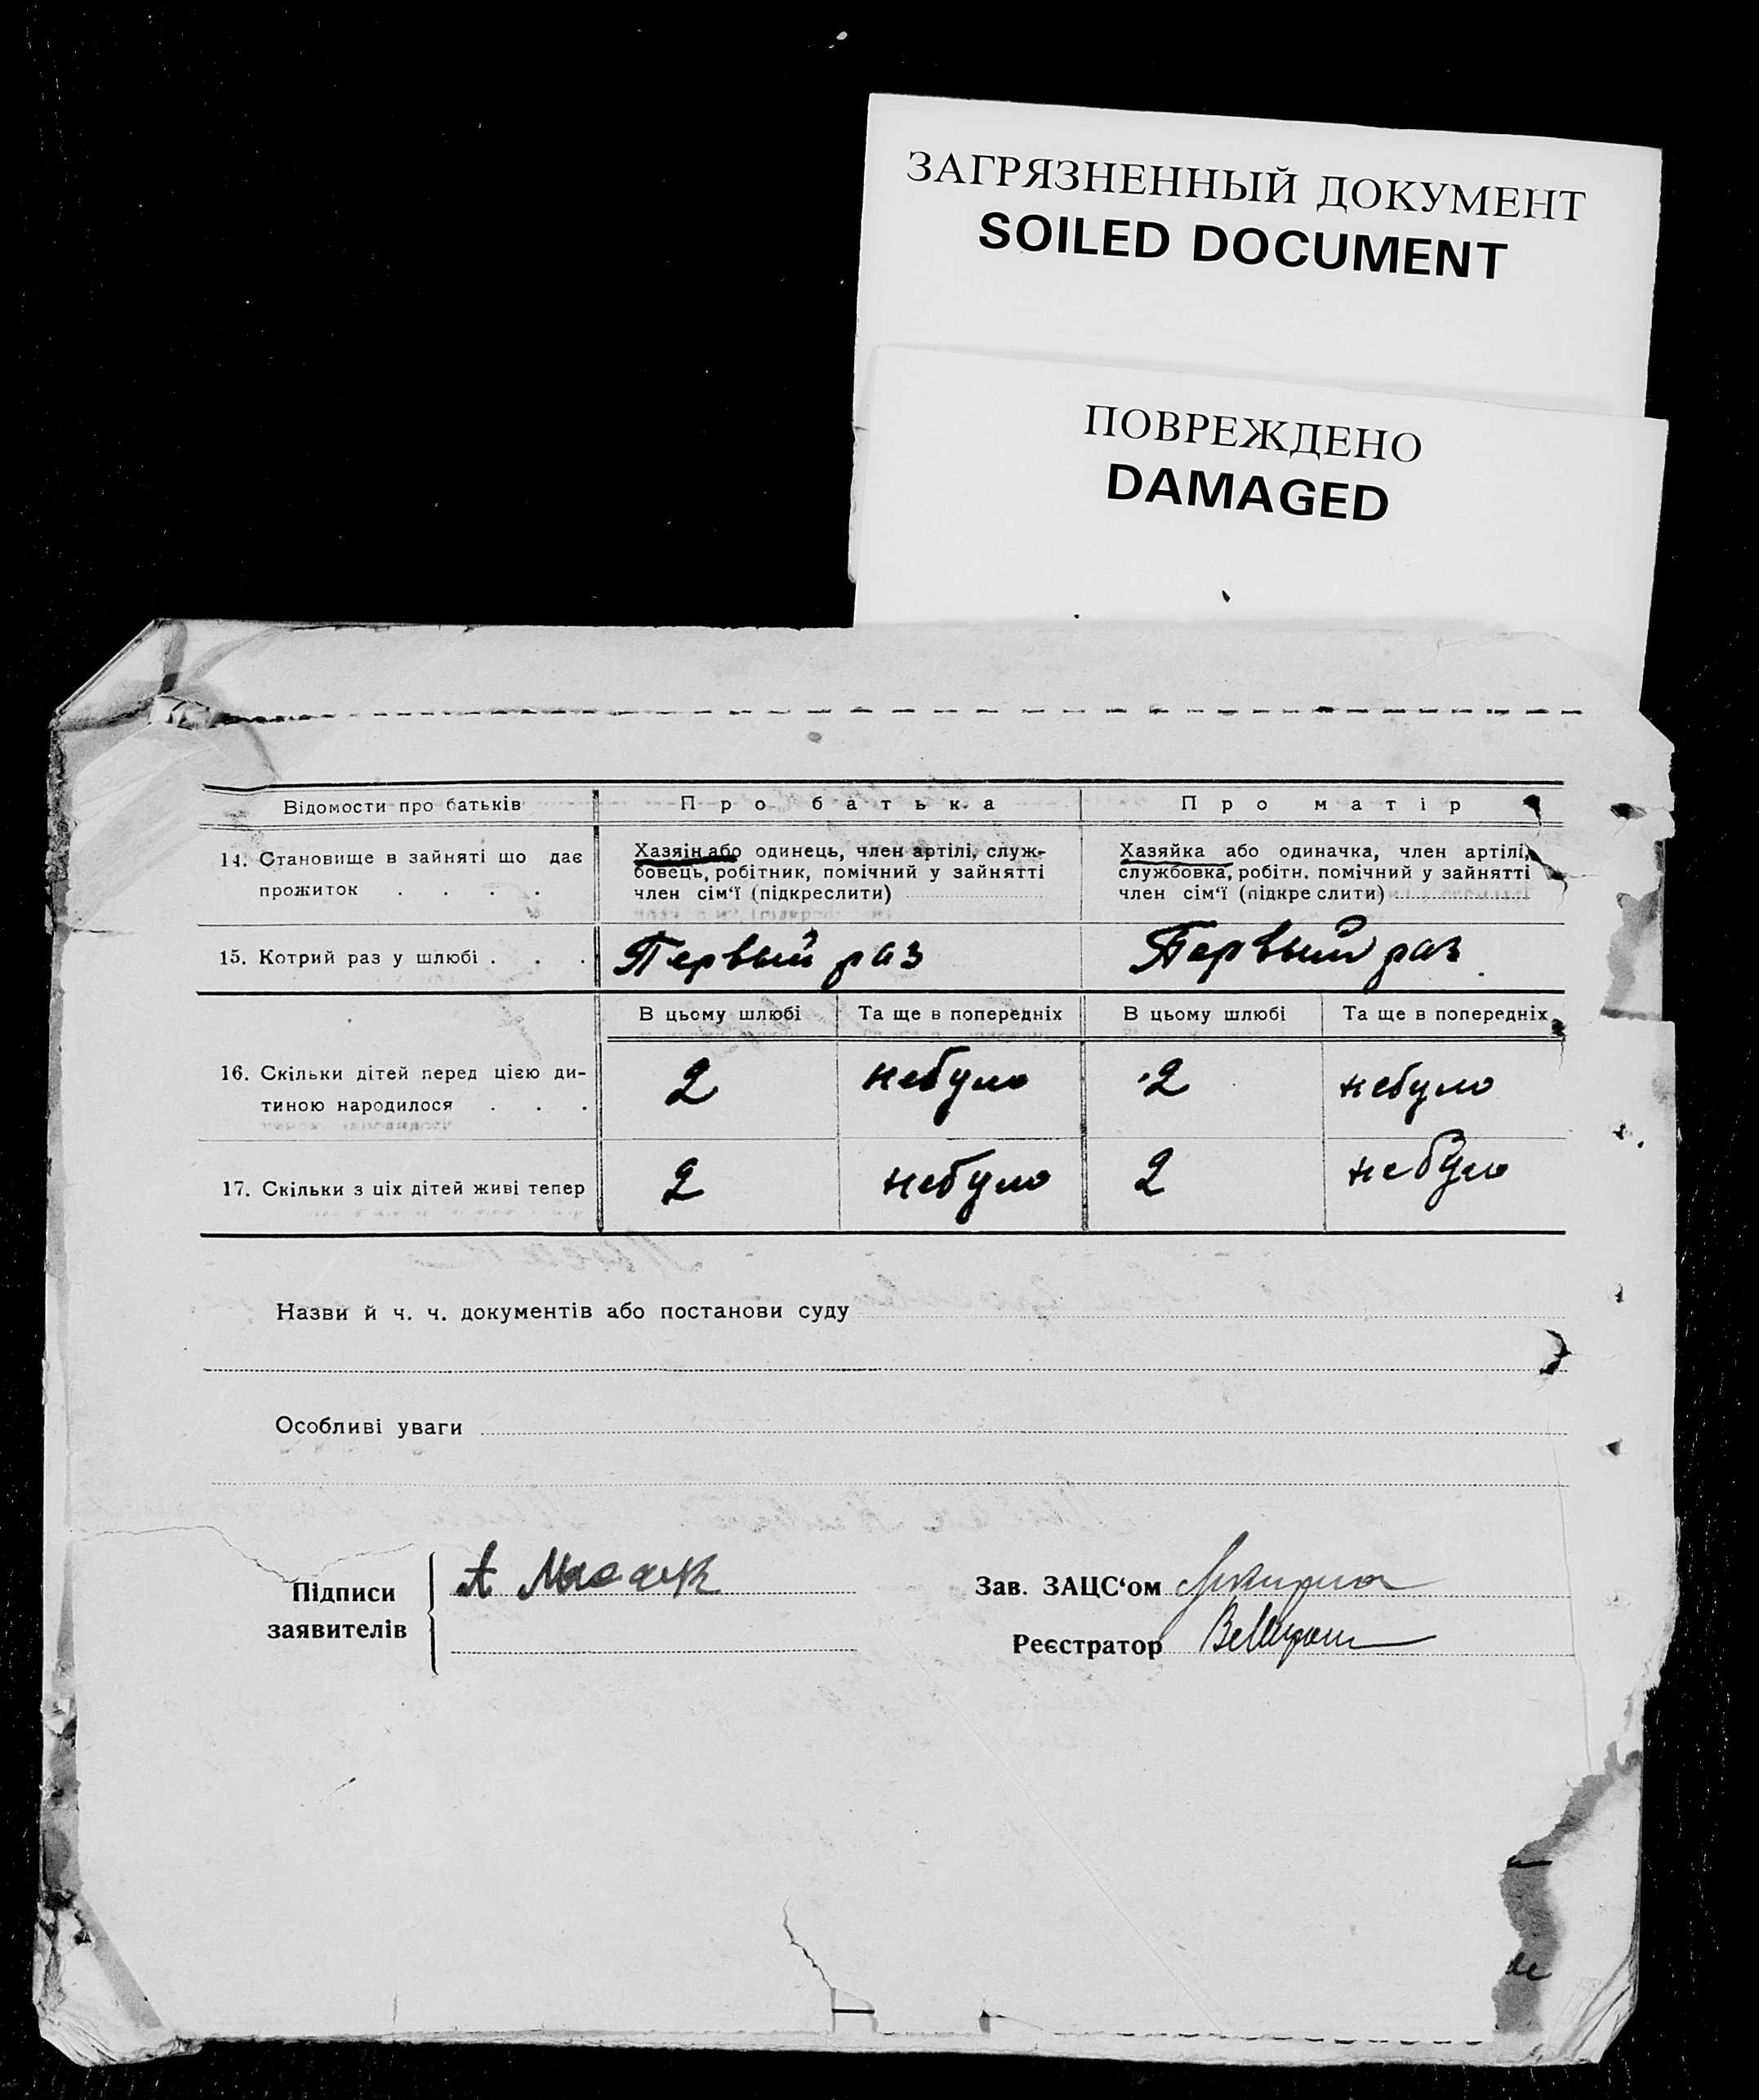 ЗАГРЯЗНЕННЫЙ ДОКУМЕНТ
SOILED DOCUMENT
ПОВРЕЖДЕНО
DAMAGED
Відомости про батьків Про батька Про матір
14. Становище в зайняті що дає прожиток . . . .
Хазяін або одинець, член артілі, служ-
бовець, робітник, помічний у зайнятті
член сім‘ї (підкреслити)
Хазяйка або одиначка, член артілі,
службовка, робітн. помічний у зайнятті
член сім‘ї (підкре слити)
15. Котрий раз у шлюбі . . . Первый раз Первый раз
В цьому шлюбі Та ще в попередніх В цьому шлюбі Та ще в попередніх
16. Скільки дітей перед цією ди-
тиною народилося . . . 2 небуло 2 небуло
17. Скільки з ціх дітей живі тепер 2 небуло 2 небуло
Назви й ч. ч. документів або постанови суду
Особливі уваги
Підписи
заявителів
А
Зав. ЗАЦС‘ом
Реєстратор